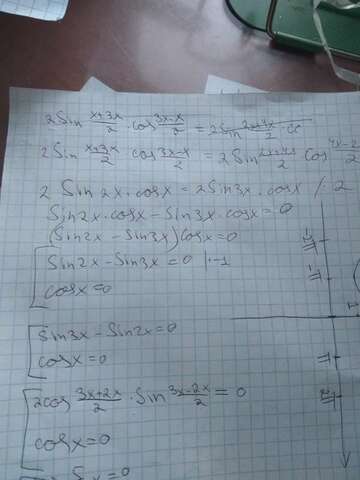 2 Sin x+3x/2 · cos 3x-x/2 = 2 Sin 2x+4x/2 · cc
2 Sin x+3x/2 cos 3x-x/2 = 2 Sin 2x+4x/2 Cos 4x-2
2 Sin 2x · cosx = 2 Sin 3x · cosx /: 2
Sin2x · cosx - Sin3x · cosx = 0
(Sin2x - Sin3x) Cosx = 0
Sin2x - Sin3x = 0 | · -1
cosx = 0
Sin3x - Sin2x = 0
Cosx = 0
2cos 3x+2x/2 · Sin 3x-2x/2 = 0
cosx = 0